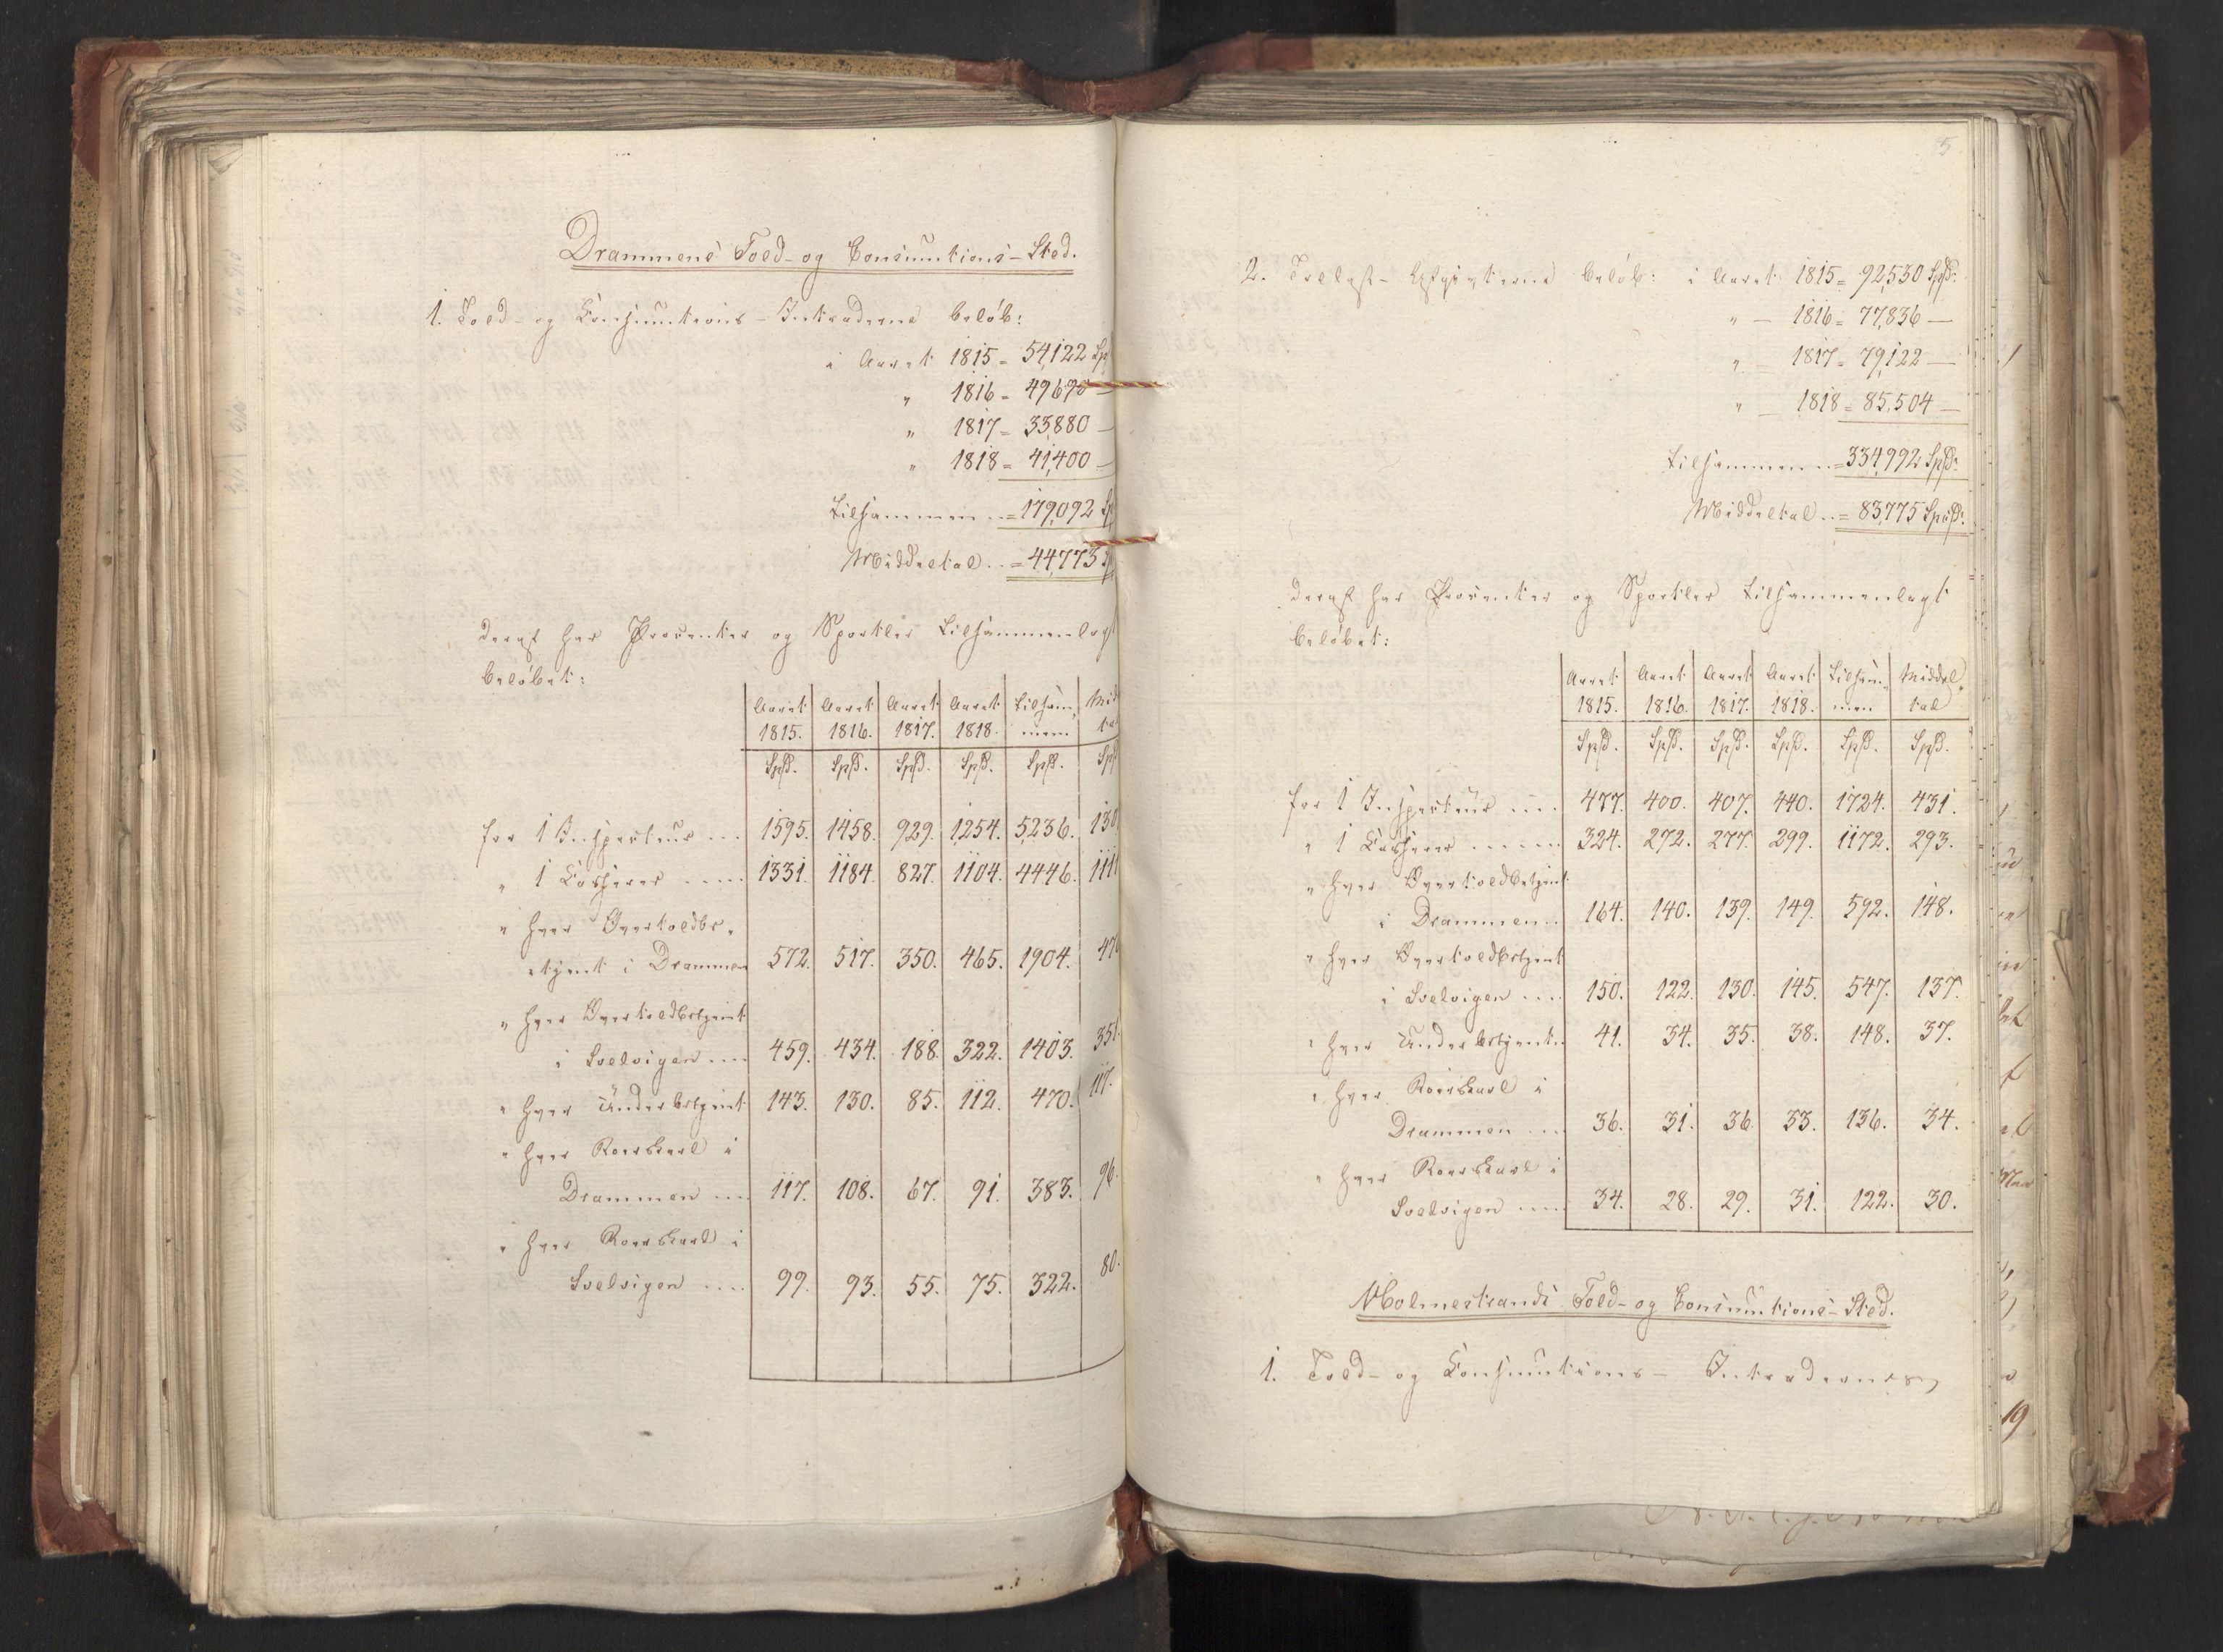 Drammens Told- og Consumtions-Sted.
1. Told- og Consumtions-Intraderne beløb:
i Aaret 1815 = 54,122 Sp
" 1816 = 49,690 —
" 1817 = 33,880 —
" 1818 = 41,400 —
tilsammen .. = 179,092 Sp
Middeltal .. = 44,773
deraf har Procenter og Sportler tilsammenlagt
beløbet:
Aaret Aaret Aaret Aaret tilsam- Mid
1815. 1816. 1817. 1818. men. ta
Spd. Spd. Spd. Spd. Spd. Sp
for 1 Inspecteur ... 1595. 1458. 929. 1,254. 5,236. 130
" 1 Casserer .... 1331. 1184. 827. 1104. 4446. 111
" hver Overtoldbe-
tjent i Drammen 572. 517. 350. 465. 1904. 476
" hver Overtoldbetjent
i Svelvigen .... 459. 434. 188. 322. 1403. 351.
" hver Underbetjent 143. 130. 85. 112. 470. 117.
" hver Roerskarl i
Drammen .... 117. 108. 67. 91. 383. 96.
" hver Roerskarl i
Svelvigen .... 99. 93. 55. 75. 322. 80.
5
2. Trelast-Afgivterne beløb: i Aaret 1815 = 92,530 Spd.
" — 1816 = 77,836 —
" — 1817 = 79,122 —
" — 1818 = 85,504 —
tilsammen .. = 334,992 Spd.
Middeltal .. = 83,775 Spd.
deraf har Procenter og Sportler tilsammenlagt
beløbet:
Aaret Aaret Aaret Aaret tilsam- Middel-
1815. 1816. 1817. 1818. men tal
Spd. Spd. Spd. Spd. Spd. Spd.
for 1 Inspecteur .... 477. 400. 407. 440. 1724. 431.
" 1 Casserer ...... 324. 272. 277. 299. 1172. 293.
" hver Overtoldbetjent
i Drammen .. 164. 140. 139. 149. 592. 148.
" hver Overtoldbetjent
i Svelvigen .... 150. 122. 130. 145. 547. 137.
" hver Underbetjent .. 41. 34. 35. 38. 148. 37.
" hver Roerskarl i
Drammen .... 36. 31. 36. 33. 136. 34.
" hver Roerskarl i
Svelvigen .... 34. 28. 29. 31. 122. 30.
Holmestrands Told- og Consumtions-Sted.
1. Told- og Consumtions- Intraderne